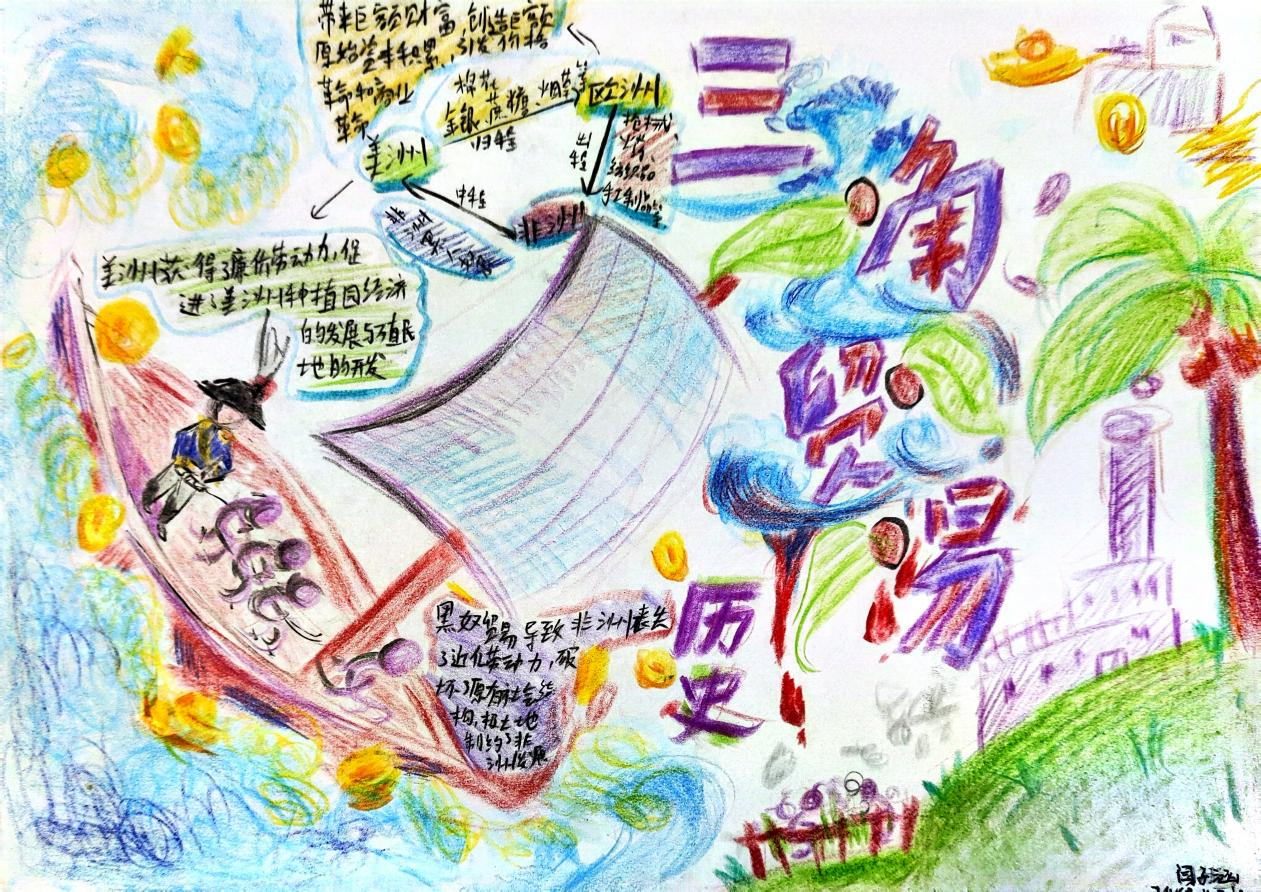 带来巨额财富,创造巨额
原始资本积累,引发价格
革命和商业
革命
棉花、烟草等
金银、蔗糖
归程
欧洲
出程
枪械
火药
纺织品
手工制品等
美洲
中程
非洲
非洲黑人奴隶
美洲获得了廉价劳动力,促
进了美洲种植园经济
的发展与殖民
地的开发
三角贸易
历史
黑奴贸易导致非洲丧失
了近亿劳动力,破
坏了原有社会结
构,极大地
制约了非
洲发展